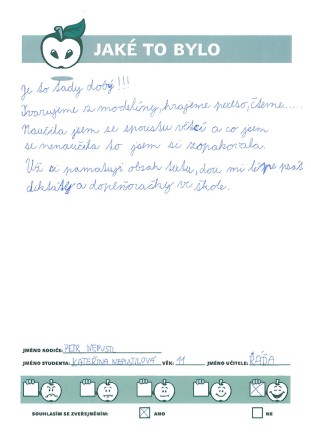 JAKÉ TO BYLO
Je to tady dobý!!!
Tvarujeme z modelíny, hrajeme pexeso, čteme.....
Naučila jsem se spoustu věcí a co jsem
se nenaučila to jsem si zopakovala.
Už si pamatuji obsah textu, dou mi lépe psát
diktáty a doplňovačky ve škole.
JMÉNO RODIČE: PETR NEPUSTIL
JMÉNO STUDENTA: KATEŘINA NEPUSTILOVÁ VĚK: 11 JMÉNO UČITELE: RÁĎA
SOUHLASÍM SE ZVEŘEJNĚNÍM: ANO NE